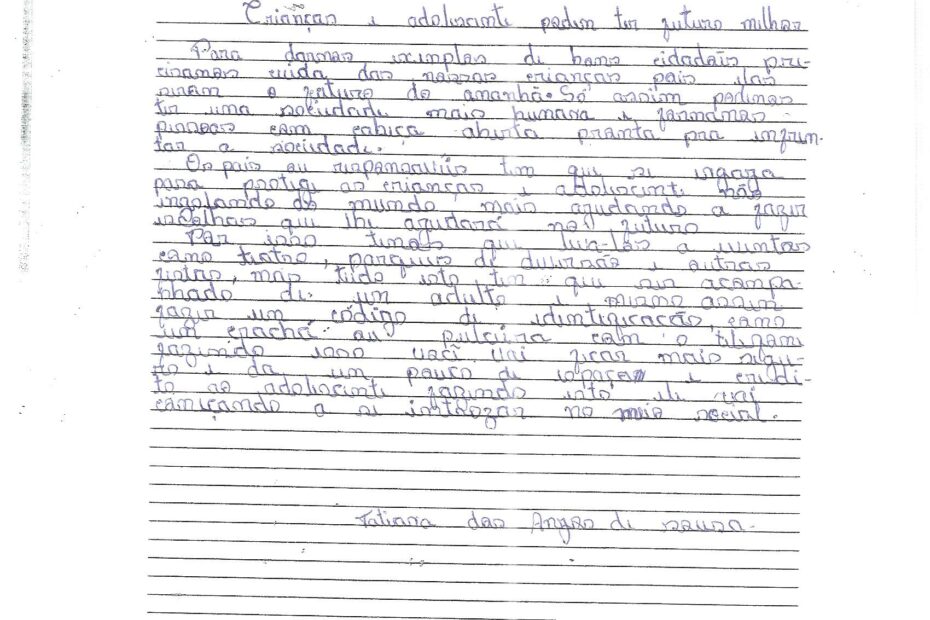 Crianças e adolescente podem ter futuro melhor
Para darmos exemplos de bons cidadãis, pre-
cisamos cuida das nossas crianças pois elas
seram o futuro do amanhã. Só assim podemos
ter uma sociedade mais humana e formamos
pessoas com cabeça aberta pronta pra enfren-
tar a sociedade.
Os pais ou responsavéis tem que se
para protege as crianças e adolescente não
isolando do mundo, mais ajudando a fazer
escolhas que lhe ajudará no futuro
Por isso temos que leva-los a eventos
como teatro, parques de diversão e outras
festas, mais tudo isto tem que ser acompa-
nhado de um adulto e mesmo assim
fazer um código de identificação, como
um crachá ou pulceira com o telefone
fazendo isso você vai ficar mais segu-
ro e da um pouco de espaço e credi-
to ao adolescente fazendo isto ele vai
começando a se introzar no meio social.
Tatiana dos Anjos de sousa.